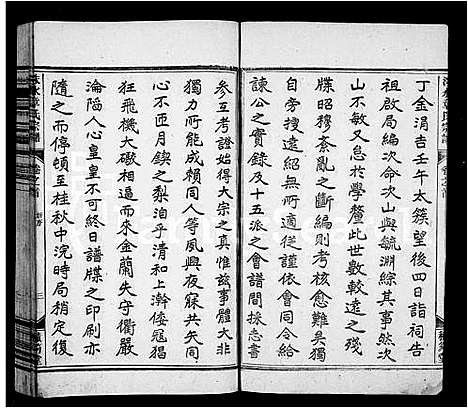 丁金涓吉壬午太簇望後四日詣祠告
祖啟局編次命次山與毓淵綜其事然次
山不敏又怠於學釐此世數較遠之殘
牒昭穆紊亂之斷編則考核愈難矣獨
諫公自遠紹無所適從謹依會公會忠
諫公之實錄及十五派之會譜間採志書
參互考證始得大宗之真惟茲事體大非
獨力所能成賴同人等夙興夜寐共矢同
心不匝月鍥之梨洎乎清和上澣倭寇猖
狂飛機大礮相逼而來金蘭失守衢嚴
淪陷人心皇皇不可終日譜牒之印刷亦
隨之而停頓至桂秋中浣時局稍定復